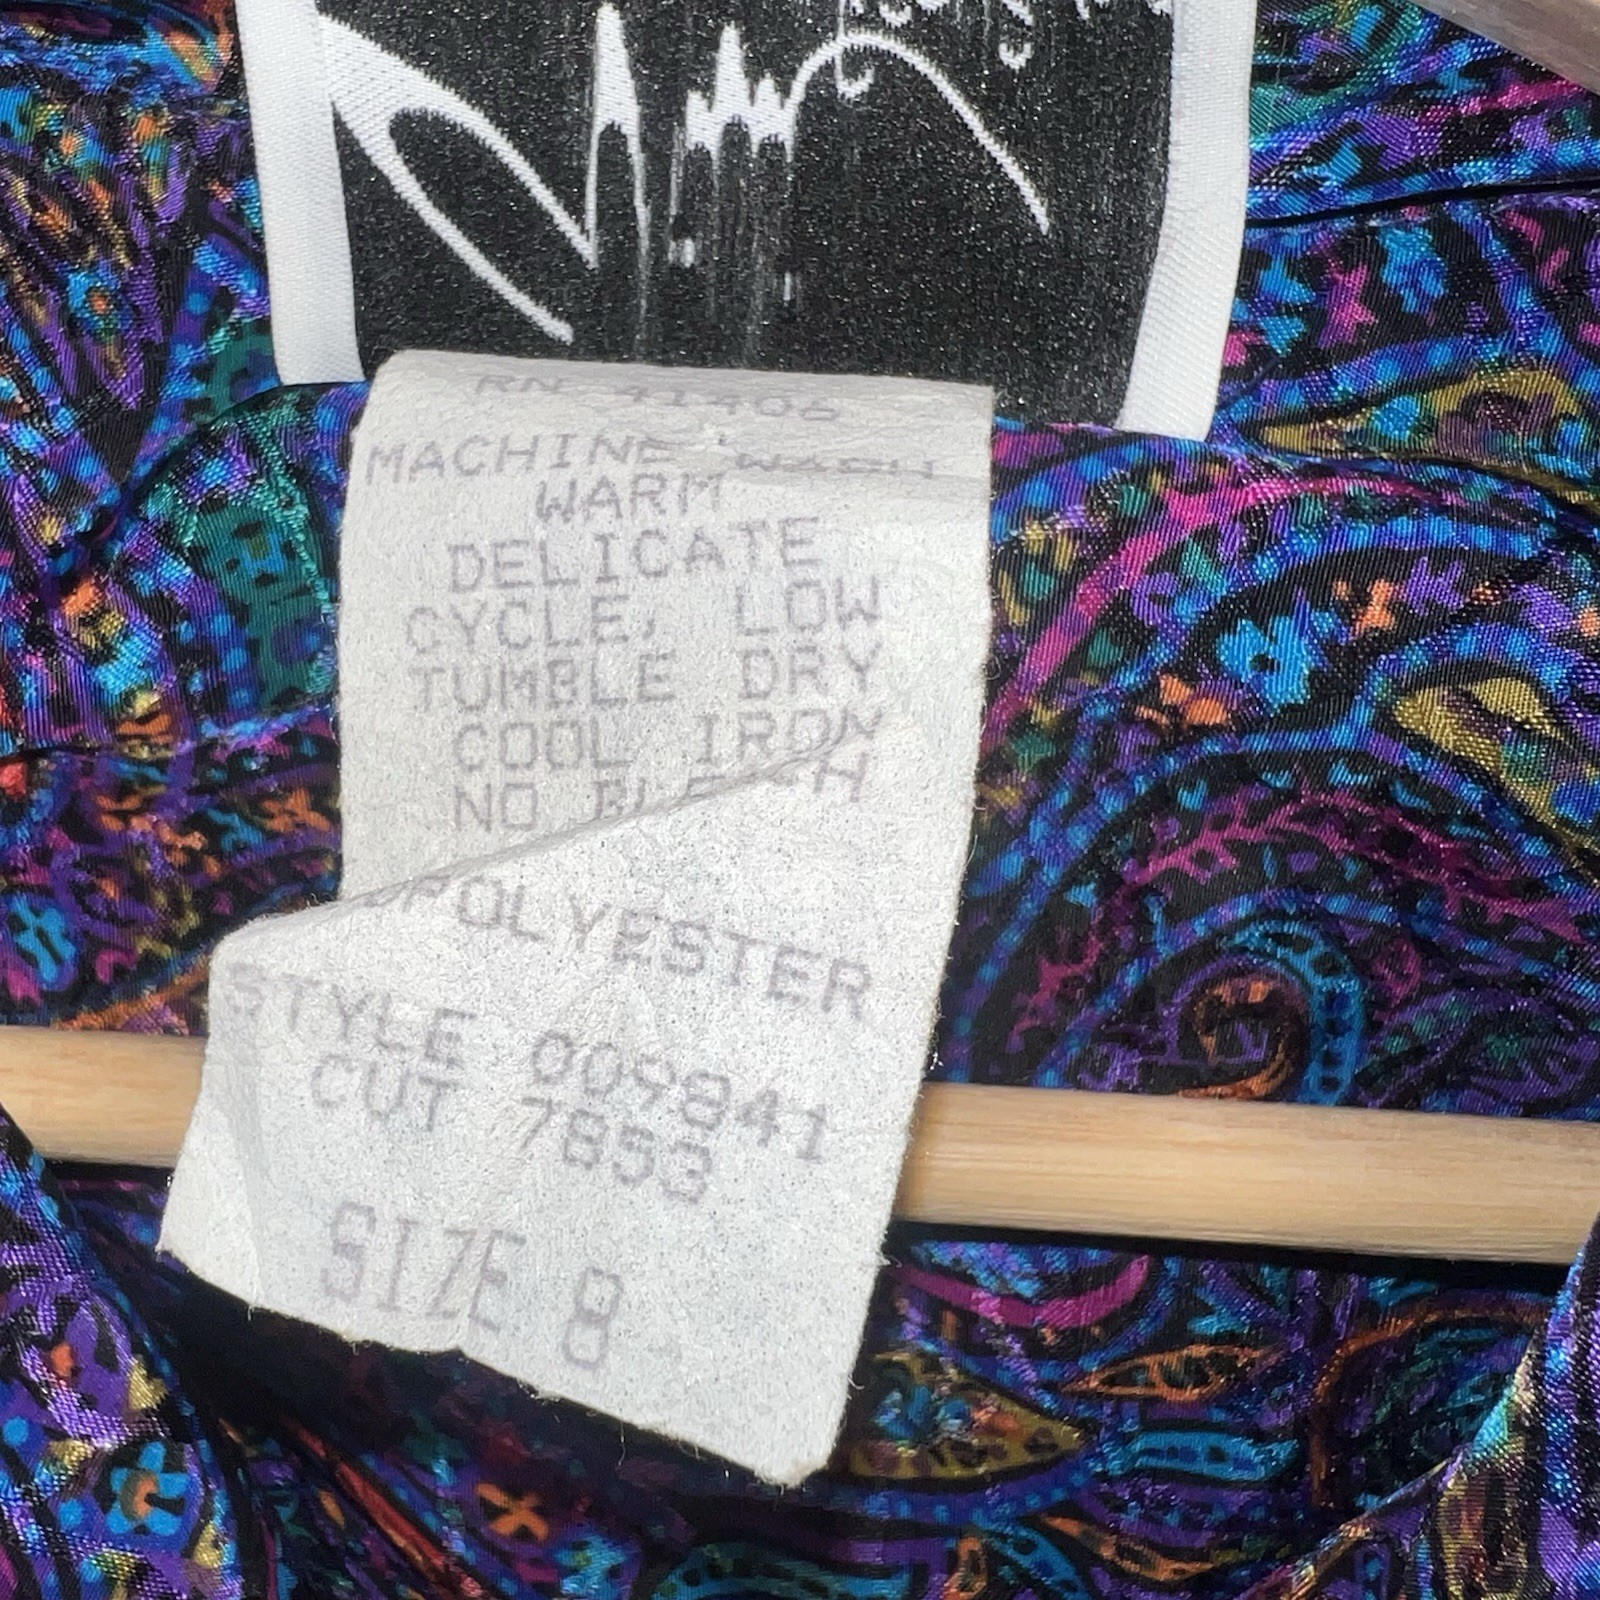 RN 41406
MACHINE WASH
WARM
DELICATE
CYCLE, LOW
TUMBLE DRY
COOL IRON
NO BLEACH
POLYESTER
STYLE 009841
CUT 7853
SIZE 8